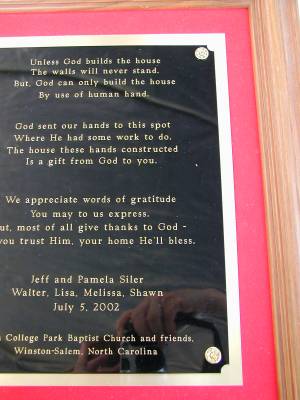 Unless God builds the house
The walls will never stand.
But, God can only build the house
By use of human hand.
God sent our hands to this spot
Where He had some work to do.
The house these hands constructed
Is a gift from God to you.
We appreciate words of gratitude
You may to us express.
ut, most of all give thanks to God -
you trust Him, your home He'll bless.
Jeff and Pamela Siler
Walter, Lisa, Melissa, Shawn
July 5, 2002
College Park Baptist Church and friends,
Winston-Salem, North Carolina